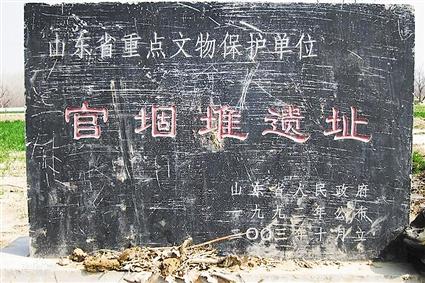 山东省重点文物保护单位
官堌堆遗址
山东省人民政府
一九九二年公布
二〇〇三年十月立